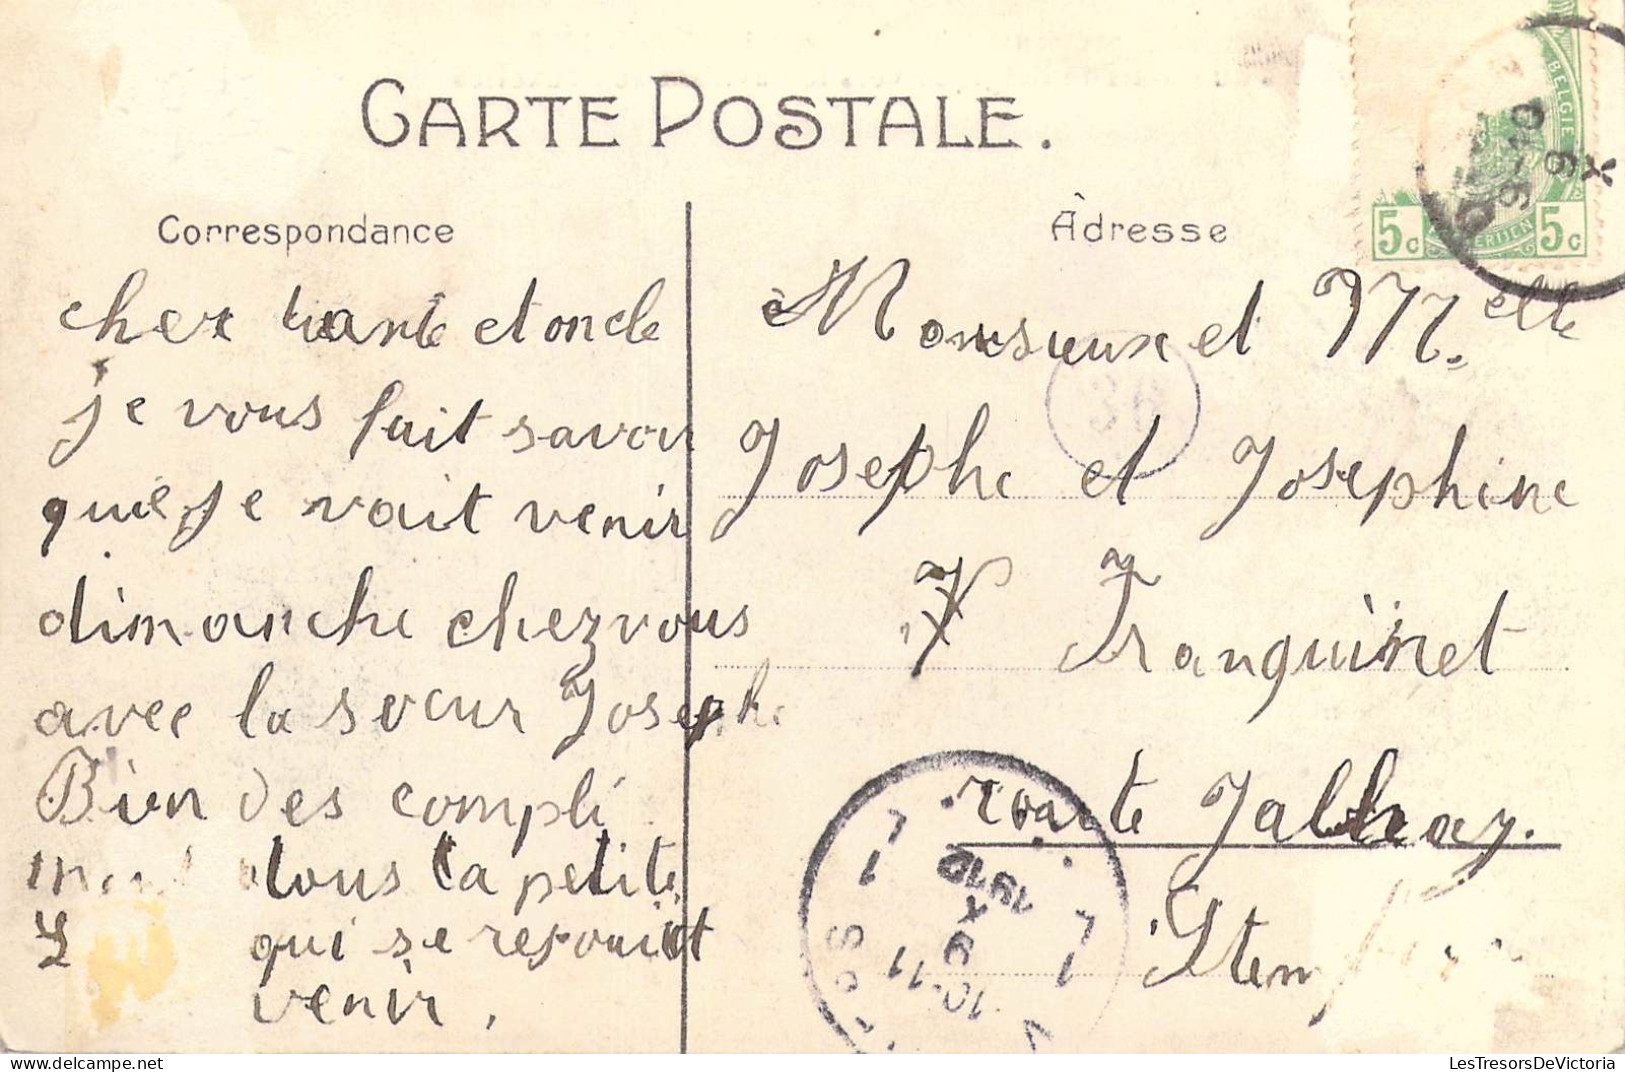 CARTE POSTALE.
Correspondance
cher tante et oncle
je vous fait savoir
que je vait venir
dimanche chez vous
avec la soeur Josephe
Bien des compli
a tous la petite
qui se rejouit
venir.
Adresse
à Monsieur et Mlle
Josephe et Josephine
X Franquinet
route Jalhay.
Stem
BELGIE
5c 5c
9-10
9
X
36
10-11
9 X
1912
LesTresorsDeVictoria